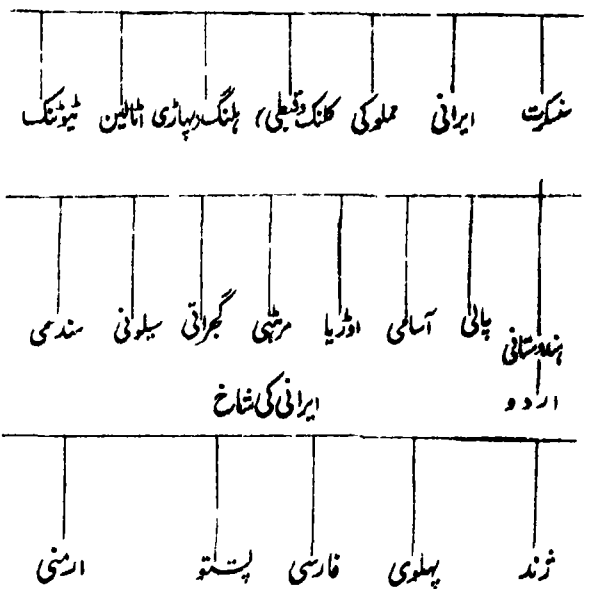 سنسکرت ایرانی مملوکی کلٹک (قبطی) ہلنگ (پہاڑی) اٹالین ٹیوٹنک
ہندوستانی پالی آسامی اوڑیا مرہٹی گجراتی سیلونی سندھی
اردو
ایرانی کی شاخ
ژند پہلوی فارسی پشتو ارمنی